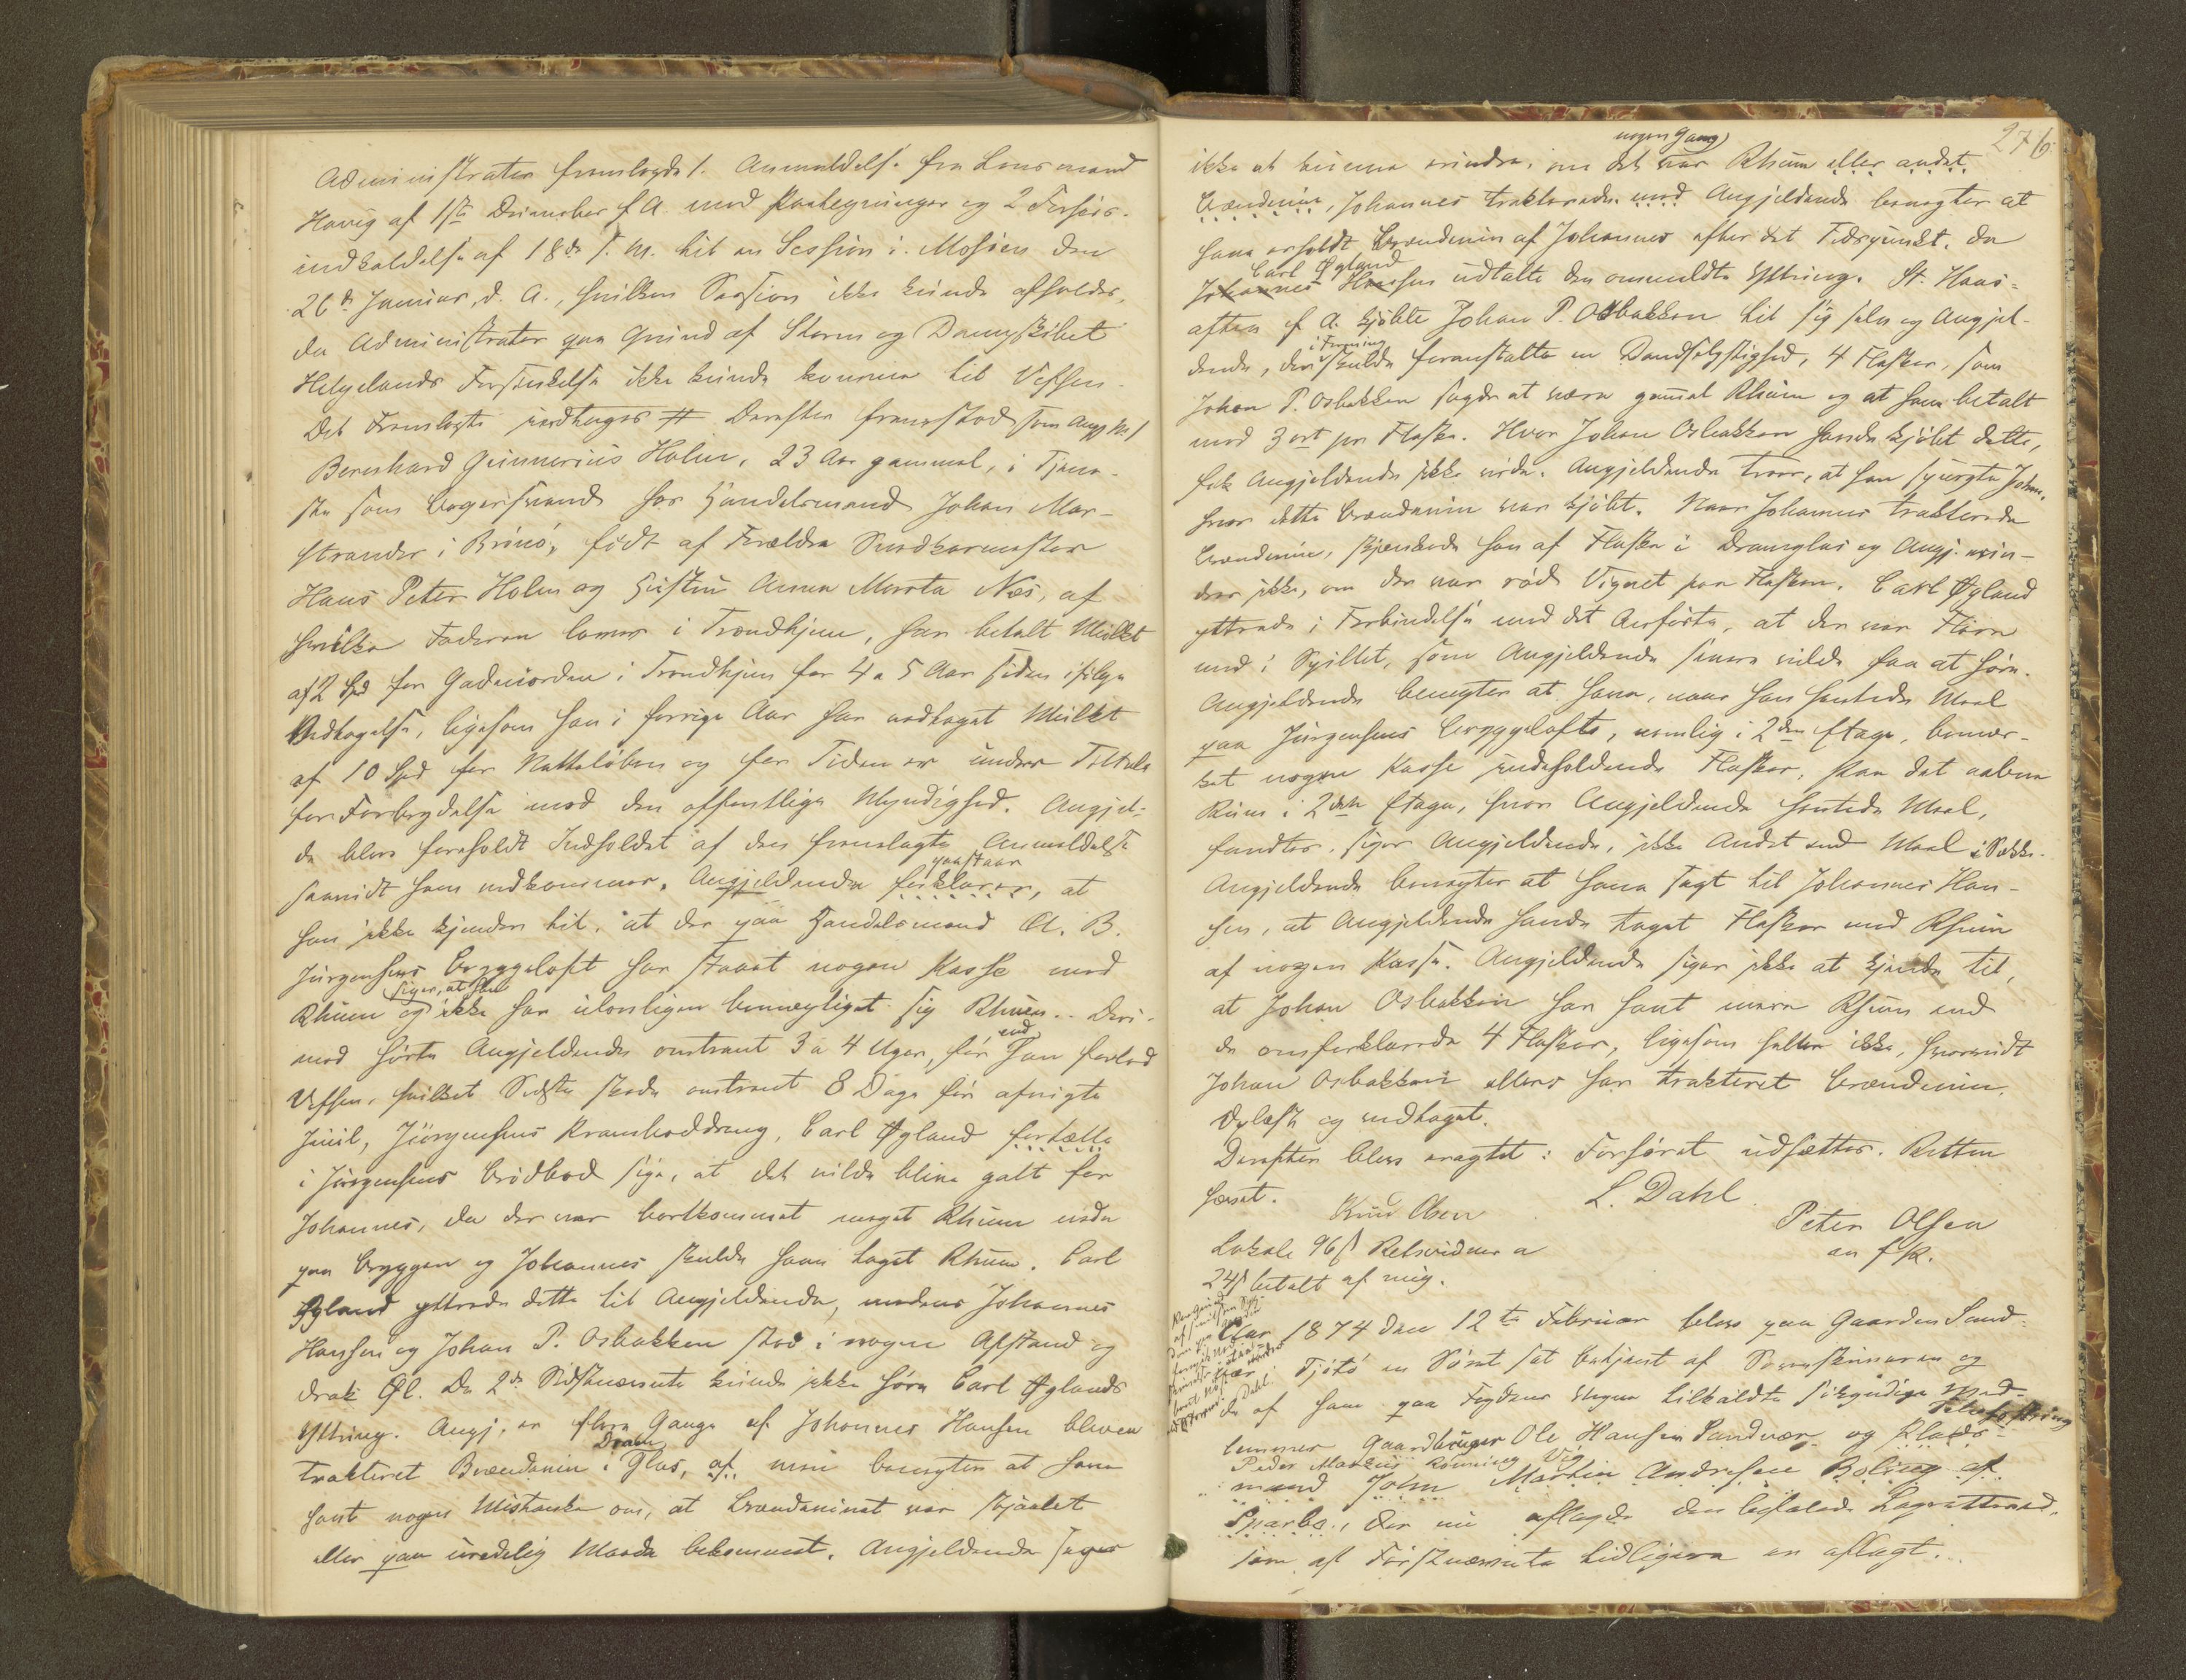 Administrator fremlagde 1. Anmeldelse fra Lensmand
Havig af 1ste December f. A. med Paategninger og 2 Forhørs-
indkaldelse af 18de s. M. til en Session i Mosjøen den
26de Januar, d. A., hvilken Session ikke kunde afholdes,
da Administrator paa Grund af Storm og Dampskibet
Helgelands Forsinkelse ikke kunde komme til Vefsen.
Det Fremlagte vedtages # Derefter fremstod som Angj. No 1
Bernhard Gunnerius Holm, 23 Aar gammel, i Tjene-
ste som Bagersvend hos Handelsmand Johan Mar-
strander i Brønø, født af Forældre Snedkermester
Hans Peter Holm og Hustru Anna Marta Næs, af
hvilke Faderen lever i Trondhjem, har betalt Mulkt
af 2 Spd for Gadeuorden i Trondhjem for 4 a 5 Aar siden ifølge
Vedtagelse, ligesom han i forrige Aar har vedtaget Mulkt
af 10 Spd for Natteløben og for Tiden er under Tiltale
for Forbrydelse mod den offentlige Myndighed. Angjel-
de blev foreholdt Indholdet af den fremlagte Anmeldelse
saavidt ham vedkommer. Angjeldende forklarer, at
paastaar
han ikke kjender til, at der paa Handelsmand A. B.
Jürgensens Bryggeloft har staaet nogen Kasse med
siger, at han
Rhum og ikke har ulovligen bemægtiget sig Rhum. Deri-
mod hørte Angjeldende omtrent 3 a 4 Uger, før end han forlod
Vefsen, hvilket Sidste skede omtrent 8 Dage før afvigte
Juul, Jürgensens Kramboddreng, Carl Øgland fortælle
i Jürgensens Brødbod sige, at det vilde blive galt for
Johannes, da der var bortkommet noget Rhum nede
paa Bryggen og Johannes skulde have taget Rhum. Carl
Øgland yttrede dette til Angjeldende, medens Johannes
Hansen og Johan P. Osbakken stod i nogen Afstand og
drak Øl. De 2de Sidstnævnte kunde ikke høre Carl Øglands
Yttring. Angj. er flere Gange af Johannes Hansen bleven
Dram
trakteret Brændeviin i Glas, af men benægter at have
havt nogen Mistanke om, at Brændevinet var stjaalet
eller paa uredelig Maade bekommet. Angjeldende siger
276
nogen Gang
ikke at kunne erindre, om det var Rhum eller andet
Brændeviin, Johannes trakterede med Angjeldende benægter at
have erholdt Brændeviin af Johannes efter det Tidspunkt, da
Carl Øgland
Johannes Hansen udtalte den ommeldte Yttring. St. Hans-
aften f. A. kjøbte Johan P. Osbakken til sig selv og Angjel-
i Forening
dende, der skulde foranstalte en Dandselystighed, 4 Flasker, som
Johan P. Osbakken sagde at være gammel Rhum og at have betalt
med 3 ort pr Flaske. Hvor Johan Osbakken havde kjøbt dette,
fik Angjeldende ikke vide. Angjeldende troer, at han spurgte Johan,
hvor dette Brændeviin var kjøbt. Naar Johannes trakterede
Brændeviin, skjænkede han af Flaske i Dramglas og Angj. erin-
drer ikke, om der var rød Vignet paa Flasken. Carl Øgland
yttrede i Forbindelse med det Anførte, at der var Flere
med i Spillet, som Angjeldende senere vilde faa at høre.
Angjeldende benegter at have, naar han hentede Meel
paa Jürgensens Bryggeloft, nemlig i 2den Etage, bemær-
ket nogen Kasse indeholdende Flasker, paa det aabne
Rum i 2den Etage, hvor Angjeldende hentede Meel,
fandtes, siger Angjeldende, ikke Andet end Meel i Sække.
Angjeldende benegter at have sagt til Johannes Han-
sen, at Angjeldende havde taget Flasker med Rhum
af nogen Kasse. Angjeldende siger ikke at kjende til,
at Johan Osbakken har havt mere Rhum end
de omforklarede 4 Flasker, ligesom heller ikke, hvorvidt
Johan Osbakken ellers har trakteret Brændeviin.
Oplæst og vedtaget.
Derefter blev eragtet: Forhøret udsættes. Retten
hævet.
L. Dahl
Knud Olsen
Peter Olsen
m f P.
Lokale 96 ß Retsvidner a
24 ß betalt af mig.
Aar 1874 den 12te Februar blev paa Gaarden Sand-
vær i Tjøtø en Søret sat betjent af Sorenskriveren og
de af ham paa Fogdens Vegne tilkaldte søkyndige Med-
lemmer Gaardbruger Ole Hansen Sandvær og Plads-
Peder Markus Rønning Vig
mand John Martin Andresen Boling af
Sparbo, der nu aflagde den befalede Lagretteseed,
som af Førstnævnte tidligere er aflagt.